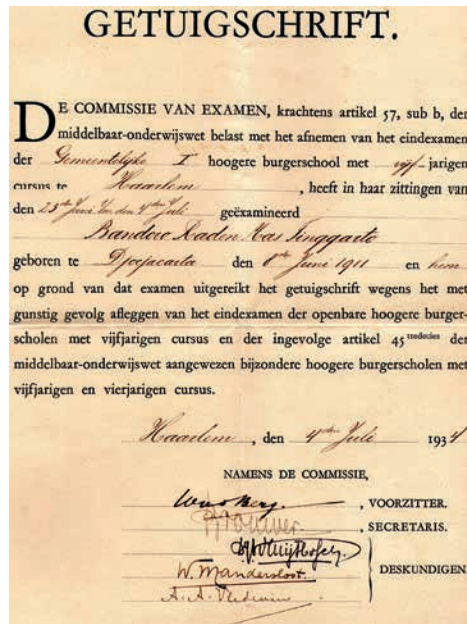 GETUIGSCHRIFT.
DE COMMISSIE VAN EXAMEN, krachtens artikel 57, sub b, der
middelbaar-onderwijswet belast met het afnemen van het eindexamen
der Gemeentelijke I hoogere burgerschool met vijf-jarigen
cursus te Haarlem, heeft in haar zittingen van
den 23sten Juni den 4den Juli geëxamineerd
Bandoro Raden Mas Tinggarto
geboren te Djocjacarta den 8sten Juni 1911 en hem
op grond van dat examen uitgereikt het getuigschrift wegens het met
gunstig gevolg afleggen van het eindexamen der openbare hoogere burger-
scholen met vijfjarigen cursus en der ingevolge artikel 45 tredecies der
middelbaar-onderwijswet aangewezen bijzondere hoogere burgerscholen met
vijfjarigen en vierjarigen cursus.
Haarlem, den 4den Juli 1934
NAMENS DE COMMISSIE,
, VOORZITTER.
Brouwer, SECRETARIS.
DESKUNDIGEN.
W. Mandersloot.